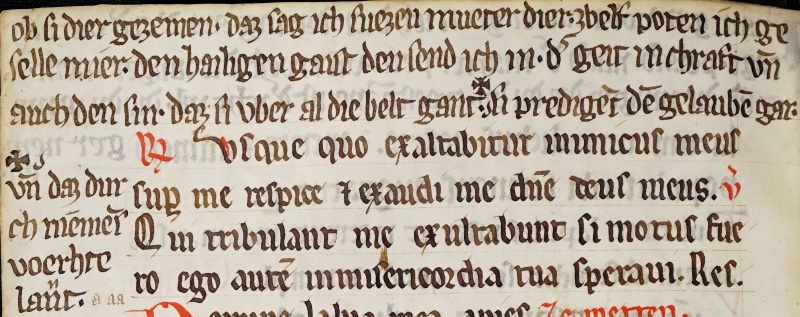 ob si dier gezemen· daz sag ich suezen mueter dier· zbelf poten ich ge
selle mier· den hailigen gaist den send ich in· d̕ geit in chraft vn̄
auch den sin· daz si vber al die belt gant· ✠ si predigēt dē gelaubē gar·
℟ Vsque quo exaltabitur inimicus meus
sup̱ me respice ⁊ exaudi me dn̄e deus meus. v̄
Qui tribulant me exultabunt si motus fue
ro ego autē in misericordia tua speraui. Res.
✠
vn̄ daz dur
ch mēmers
voerhte
laūt· a aa
Domine labia mea aperies